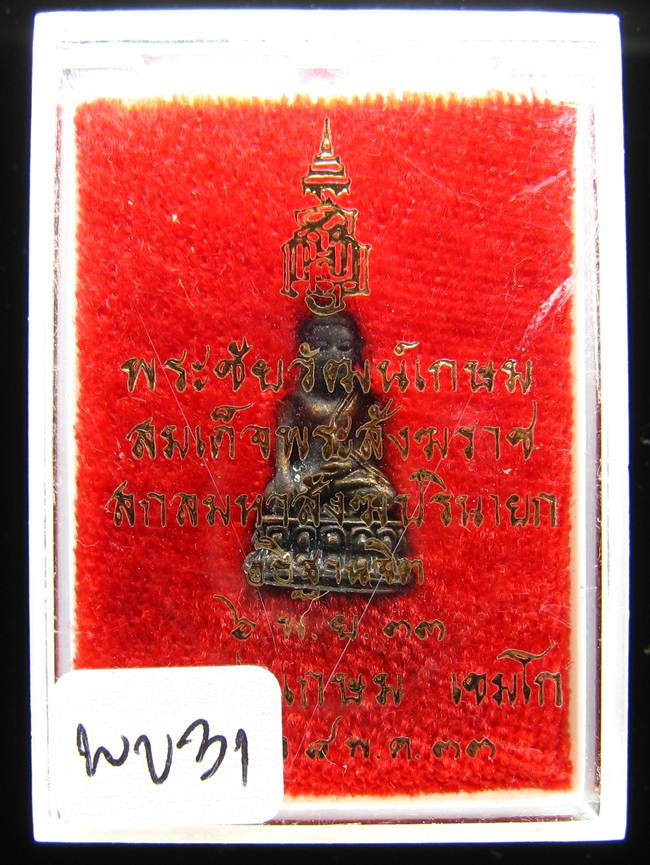 พระชัยวัฒน์เกษม
สมเด็จพระสังฆราช
สกลมหาสังฆปรินายก
อธิฐานจิต
๖ พ.ย.๓๓
เกษม เขมโก
๕ พ.ค.๓๓